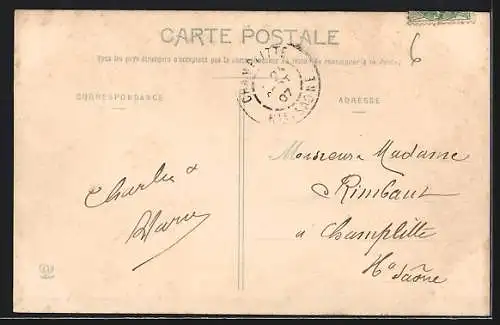 CARTE POSTALE
Tous les pays étrangers n'acceptent pas la correspondance au recto. Se renseigner à la Poste.
CHAMPLITTE
07
HTE-SAONE
6
CORRESPONDANCE
ADRESSE
Charles &
Monsieur & Madame
Rimbaut
à Champlitte
Hte Saône